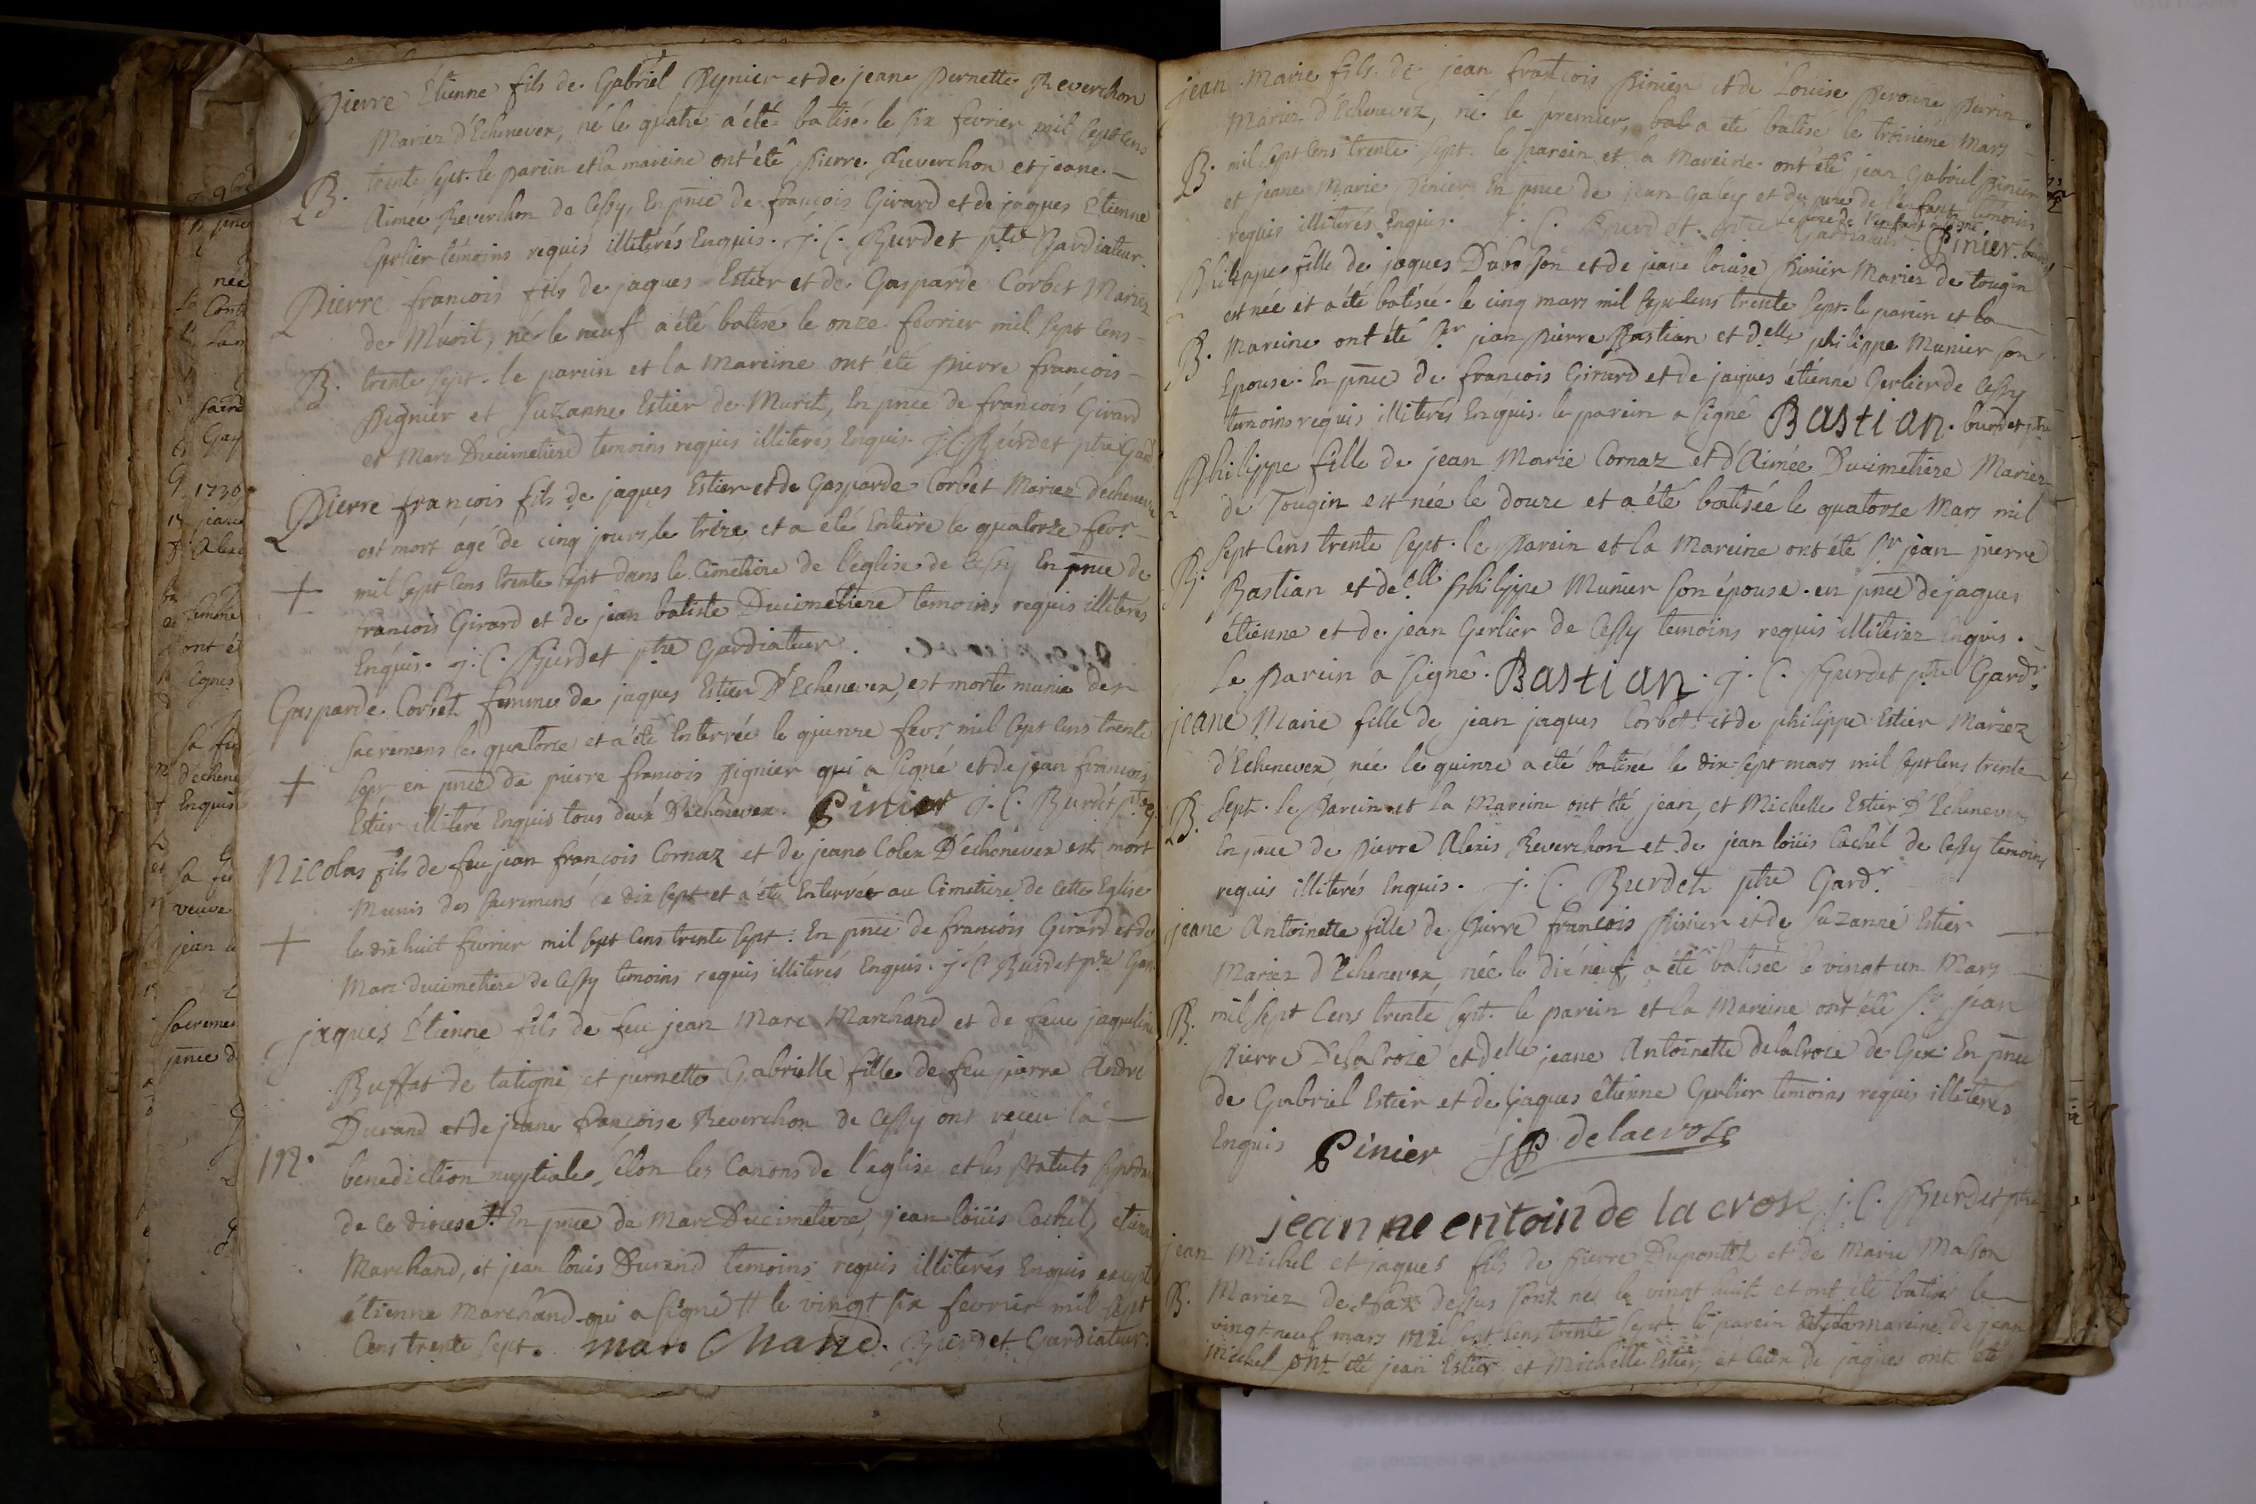 Pierre Étienne fils de Gabriel Pynier et de jeane Pernette Reverchon
Mariez d'Echenevex, né le quatre a été batisé le six fevrier mil sept cens
B. trente sept. le parein et la mareine ont été Pierre Reverchon et jeane
Aimée Reverchon de Cessy, En pnce de françois Girard et de jaques Étienne
Gerlier témoins requis illiterés Enquis. j. C. Burdet ptre Gardiateur.
Pierre francois fils de jaques Estier et de Gasparde Corbet Mariez
de Murit, né le neuf a été batisé le onze fevrier mil sept cens
B. trente sept. le parein et la Mareine ont été pierre francois
Pignier et Suzanne Estier de Murit, En pnce de francois Girard
et Marc Ducimetiere temoins requis illiterés Enquis. j. C. Burdet ptre Gard
Pierre françois fils de jaques Estier et de Gasparde Corbet Mariez d'echenevex
est mort agé de cinq jours, le trèze et a été Enterré le quatorze fevr.
+ mil sept cens trente sept dans le Cimetiere de l'église de Cessy En pnce de
francois Girard et de jean batiste Ducimetiere temoins requis illiteres
Enquis. j. C. Burdet ptre Gardiateur.
Gasparde Corbet femme de jaques Estier D'Echenevex, est morte munie des
sacremens le quatorze et a été Enterrée le quinze fevr mil sept cens trente
+ sept en pnce de pierre francois pignier qui a signé et de jean francois
Estier illiteré Enquis tous deux D'echenevex. Pinier j. C. Burdet ptre g.
Nicolas fils de feu jean françois Cornaz et de jeane Colex D'échenevex est mort
Munis des sacremens le dix sept et a été Enterrée au Cimetiere de cette Eglise
+ le dix huit fevrier mil sept cens trente sept. En pnce de francois Girard et de
Marc ducimetiere de Cessy temoins requis illiterés Enquis. j. C. Burdet ptre Gar.
jaques Étienne fils de feu jean Marc Marchand et de feue jaqueline
Buffat de tatigni et pernette Gabrielle fille de feu pierre André
Durand et de jeane françoise Reverchon de Cessy ont receu la
192. benediction nuptiale, sélon les Canons de l'eglise et les Statuts
de ce diocese # En pnce de Marc Ducimetiere, jean loüis Cachel,
Marchand, et jean louis Durand temoins requis illiterés Enquis except
étienne Marchand qui a signé # le vingt six fevrier mil sept
Cens trente sept. marc Chand. Burdet Gardiateur.
jean Marie fils de jean francois Pinier et de Louise Peronne Perrin
Mariez d'Echenevex, né le premier, bat a été batisé le troisieme Mars
B. mil sept cens trente sept. le parein et la Mareine ont été jean Gabriel pinier
et jeane Marie Pinier En pnce de jean Galey et du pere de l'enfant temoins
requis illiterés Enquis. j. C. Burdet ptre Gardiateur. le pere de l'enfant a signé
Pinier. burd
Philippe fille de jaques Dubosson et de jeane louise Pinier Mariez de tougin
est née et a été batisée le cinq mars mil sept cens trente sept. le parein et la
B. Mareine ont été Sr jean pierre Bastian et delle philippe Munier son
Epouse. En pnce de francois Girard et de jaques étienne Gerlier de Cessy
temoins requis illiterés Enquis. le parein a signé Bastian. burdet ptre
Philippe fille de jean Marie Cornaz et d'Aimée Ducimetiere Mariez
de Tougin est née le douze et a été batisée le quatorze Mars mil
B. sept cens trente sept. le Parein et la Mareine ont été Sr jean pierre
Bastian et delle Philippe Munier son épouse. en pnce de jaques
étienne et de jean Gerlier de Cessy temoins requis illiterez Enquis.
Le Parein a signé. Bastian. j. C. Burdet ptre Gardr.
jeane Marie fille de jean jaques Corbet et de philippe Estier Mariez
d'Echenevex, née le quinze a été batisée le dix sept mars mil sept cens trente
B. Sept. le Parein et la Mareine ont été jean, et Michelle Estier D'Echenevex
En pnce de pierre Alexis Reverchon et de jean loüis Cachel de Cessy temoins
requis illiterés Enquis. j. C. Burdet ptre Gardr.
jeane Antoinette fille de Pierre francois Pinier et de Suzanne Estier
Mariez d'Echenevex, née le dix neuf, a été batisée le vingt un Mars
B. mil, sept Cens trente sept. le parein et la Mareine ont été Sr jean
Pierre Delacroix et delle jeane Antoinette delacroix de Gex. En pnce
de Gabriel Estier et de jaques étienne Gerlier temoins requis illiteres
Enquis Pinier jp delacrose
jeanne entoin de la crose j. C. Burdet ptre
jean Michel et jaques fils de pierre Dupontet et de Marie Masson
B. Mariez de dessus sont nés le vingt huit et ont été batisé le
vingt neuf mars mil sept cens trente sept. le parein et la mareine de jean
Michel ont été jean Estier et Michelle Estier, et ceux de jaques ont été